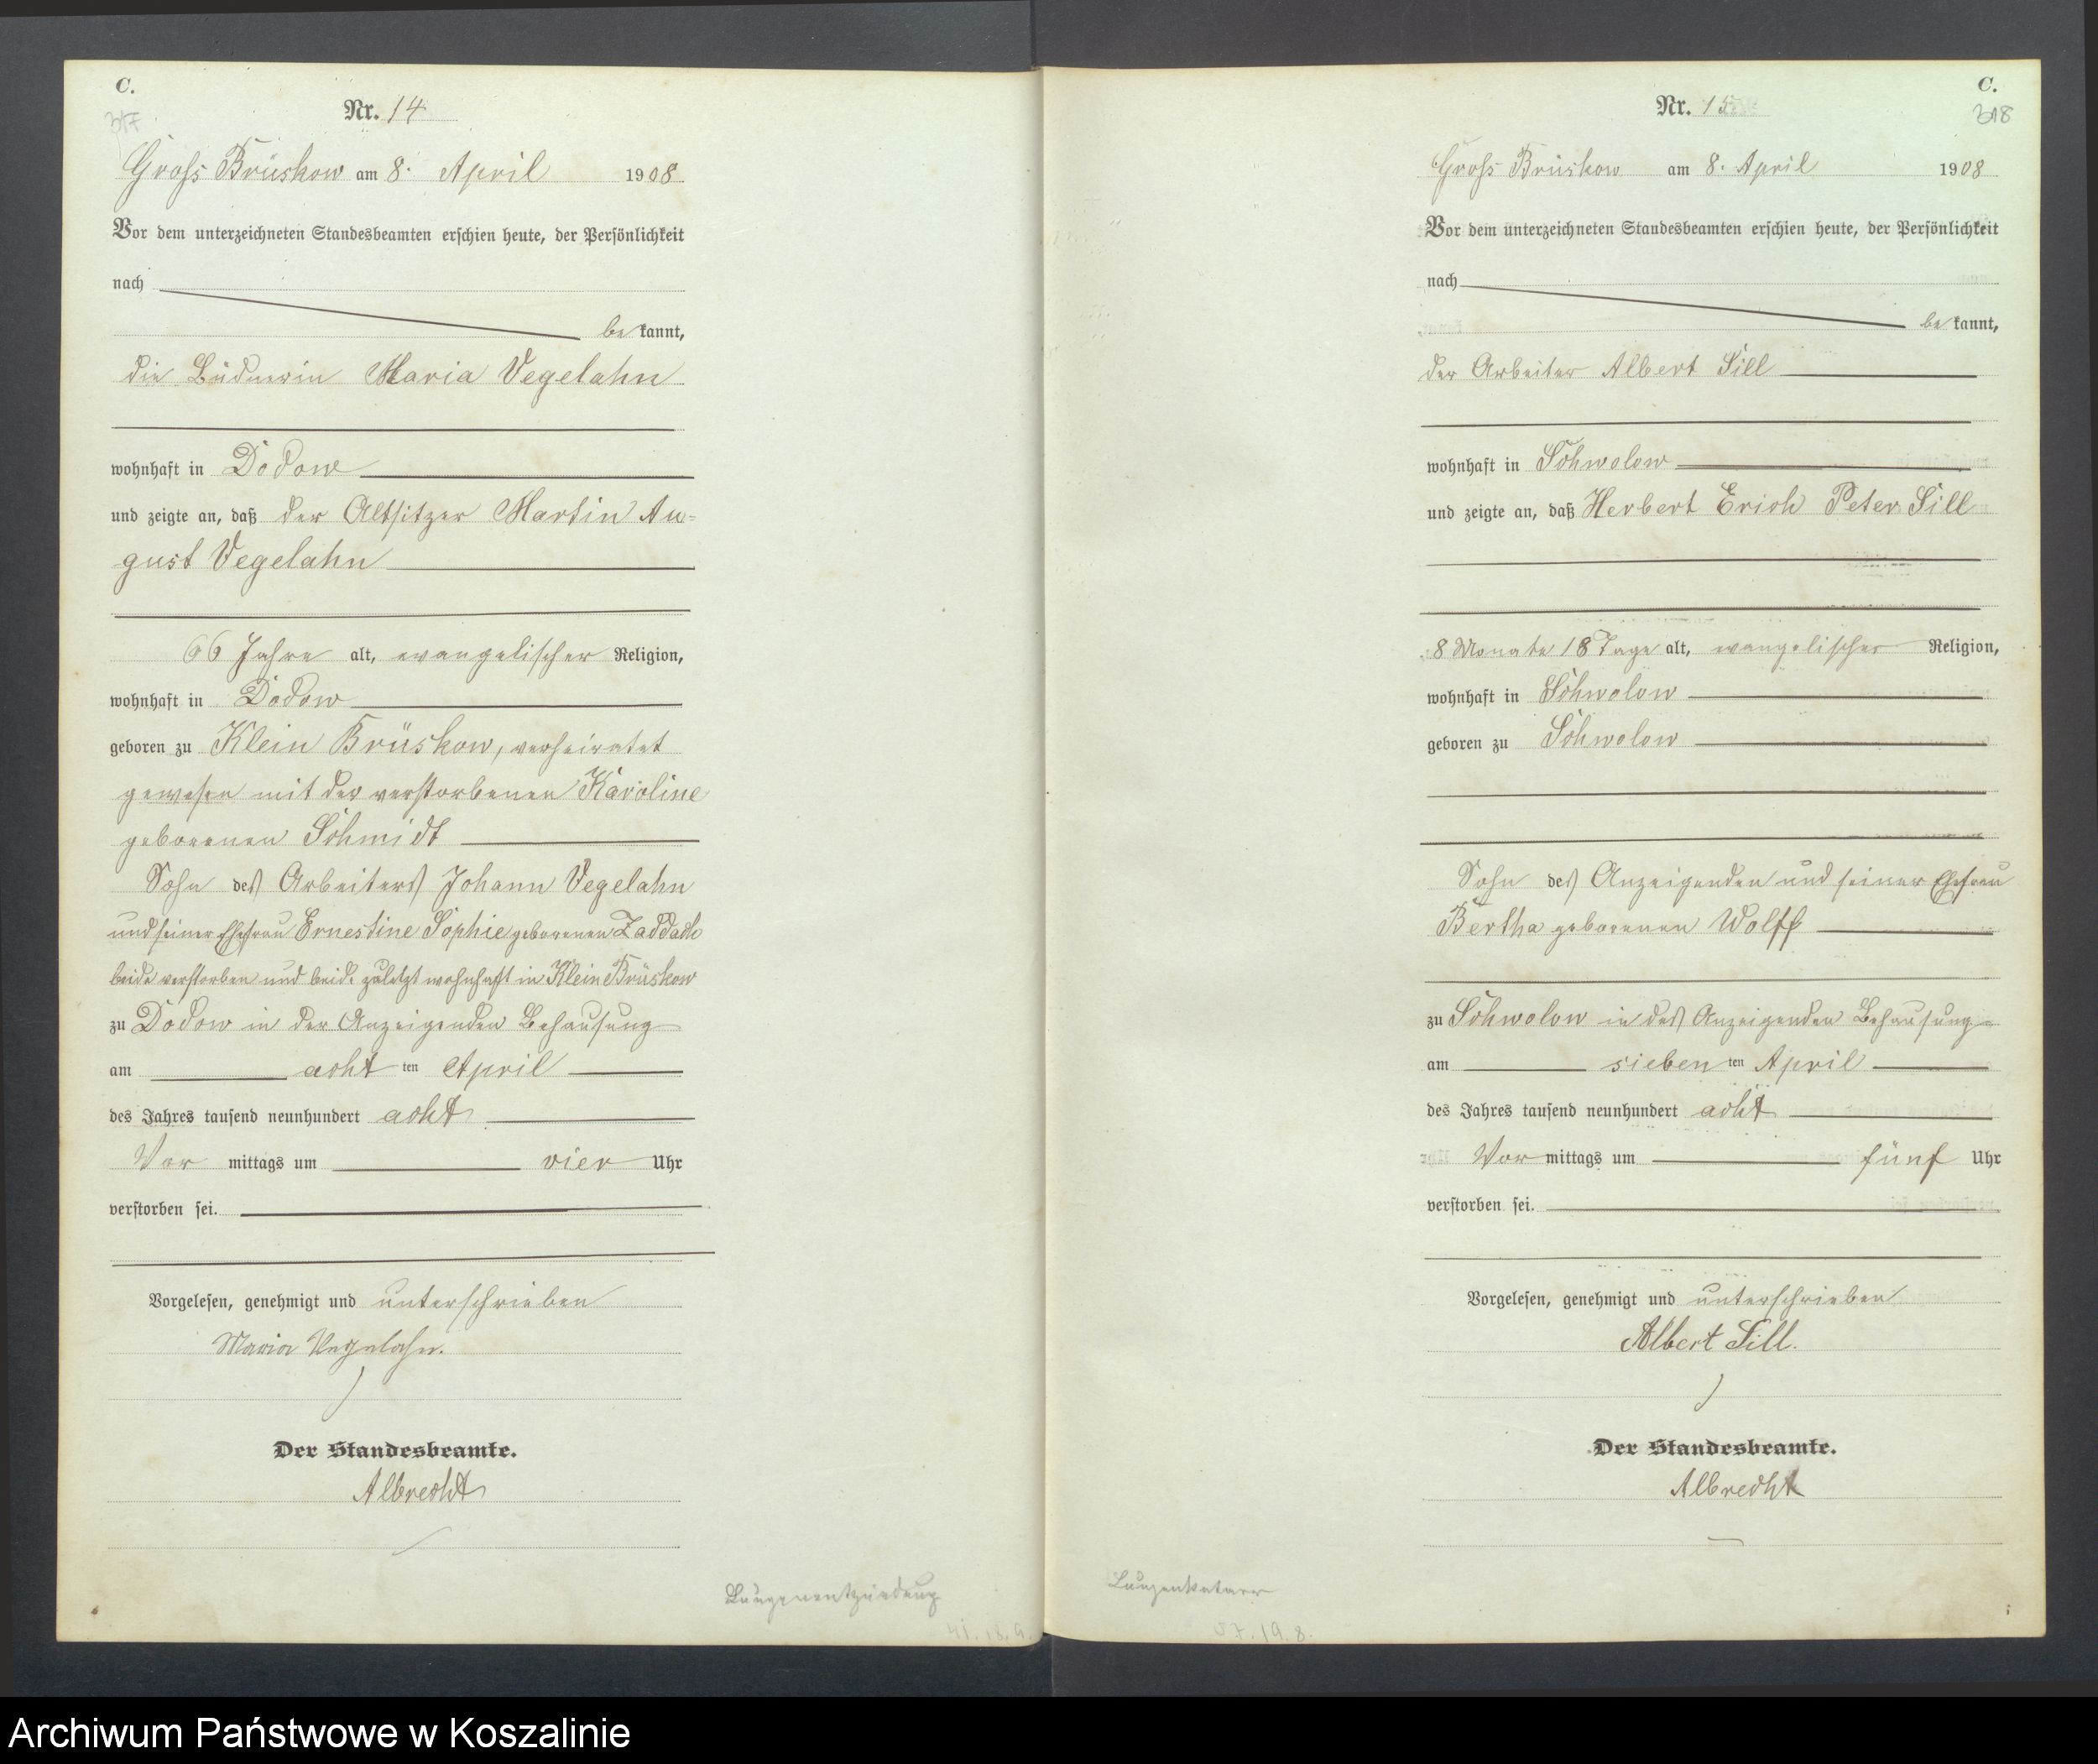 C.
317
Nr. 14
Gross Brüskow am 8. April 1908
Vor dem unterzeichneten Standesbeamten erschien heute, der Persönlichkeit
nach
bekannt,
die Büdnerin Maria Vegelahn
wohnhaft in Dodow
und zeigte an, daß der Altsitzer Martin Au=
gust Vegelahn
66 Jahre alt, evangelischer Religion,
wohnhaft in Dodow
geboren zu Klein Brüskow, verheiratet
gewesen mit der verstorbenen Karoline
geborenen Schmidt
Sohn des Arbeiters Johann Vegelahn
und seiner Ehefrau Ernestine Sophie geborenen Zaddach
beide verstorben und beide zuletzt wohnhaft in Klein Brüskow
zu Dodow in der Anzeigenden Behausung
am acht ten April
des Jahres tausend neunhundert acht
Vor mittags um vier Uhr
verstorben sei.
Vorgelesen, genehmigt und unterschrieben
Maria Vegelahn.
Der Standesbeamte.
Albrecht
Lungenentzündung
41. 18. 9.
C.
318
Nr. 15
Gross Brüskow am 8. April 1908
Vor dem unterzeichneten Standesbeamten erschien heute, der Persönlichkeit
nach
bekannt,
der Arbeiter Albert Sill
wohnhaft in Schwolow
und zeigte an, daß Herbert Erich Peter Sill
8 Monate 18 Tage alt, evangelischer Religion,
wohnhaft in Schwolow
geboren zu Schwolow
Sohn des Anzeigenden und seiner Ehefrau
Bertha geborenen Wolff
zu Schwolow in des Anzeigenden Behausung
am sieben ten April
des Jahres tausend neunhundert acht
Vor mittags um fünf Uhr
verstorben sei.
Vorgelesen, genehmigt und unterschrieben
Albert Sill.
Der Standesbeamte.
Albrecht
Lungenkatarr
57. 19. 8.
Archiwum Państwowe w Koszalinie